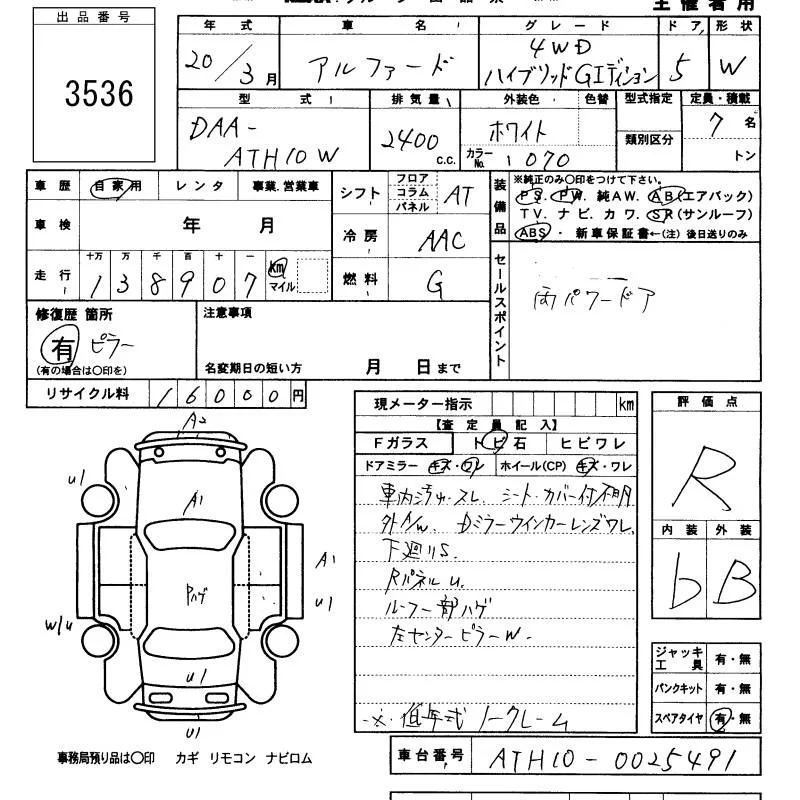 主催者用
出品番号
3536
年式 車名 グレード ドア 形状
20/3月 アルファード 4WD ハイブリッドGエディション 5 W
型式 排気量 外装色 色替 型式指定 定員・積載
DAA-
ATH10W
2400 c.c.
ホワイト
カラーNo. 070
類別区分
7名
トン
車歴 自家用 レンタ 事業.営業車
車検 年 月
走行 十万 万 千 百 十 一
138907 km マイル
シフト フロア コラム パネル AT
冷房 AAC
燃料 G
装備品
※純正のみ〇印をつけて下さい。
PS. PW. 純AW. AB(エアバック)
TV. ナビ. カワ. SR(サンルーフ)
ABS・ 新車保証書←(注) 後日送りのみ
セールスポイント
両パワードア
修復歴 箇所
有 ピラー
(有の場合は〇印を)
注意事項
名変期日の短い方 月 日まで
リサイクル料 16000円
現メーター指示 km
【査定員記入】
Fガラス トビ石 ヒビワレ
ドアミラー キズ・ワレ ホイール(CP) キズ・ワレ
車内汚れ・スレ. シートカバー付不明
外A/W. Dミラーウインカーレンズワレ.
下廻りS.
RパネルU.
ルーフ一部ハゲ
左センターピラーW.
※. 低年式 ノークレーム
評価点
R
内装 外装
b B
ジャッキ工具 有・無
パンクキット 有・無
スペアタイヤ 有・無
A2
U1
A1
Pハゲ
A1
U1
W/U
U1
U1
事務局預り品は〇印 カギ リモコン ナビロム
車台番号 ATH10-0025491